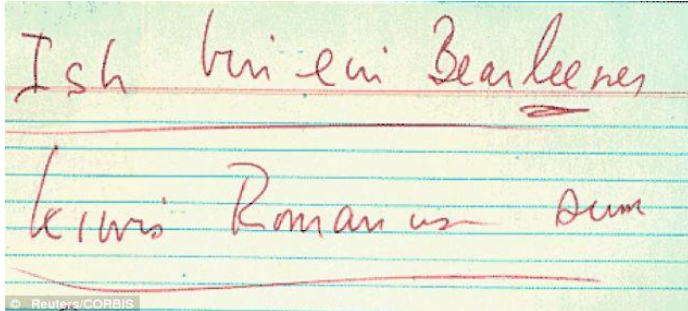 Ish bin ein Bearleener
kiwis Romanus sum
© Reuters/CORBIS